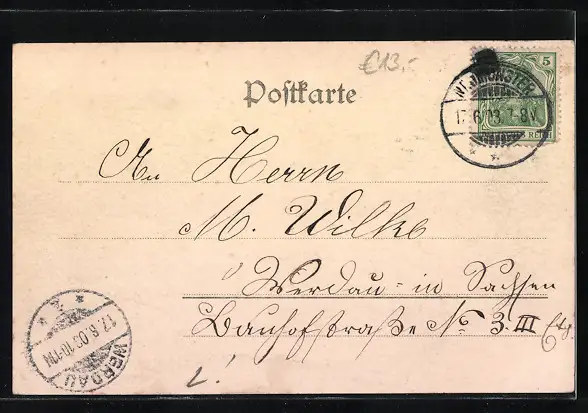 €13,-
Postkarte
NEUMÜNSTER
17.6.03. 7-8V.
5
REICH
An Herrn
M. Wilke
Werdau in Sachsen
Bauhofstraße No. 3. III
WERDAU
17.6.03.10-11N